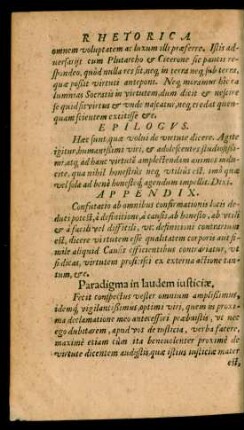 RHETORICA
omnem voluptatem ac luxum illi præferre. Istis ad-
versariis cum Plutarcho & Cicerone sic paucis re-
spondeo, quòd nulla res sit, neq; in terra neq; sub terra,
quæ possit virtuti anteponi. Neq; miramur hic ca
lumnias Socratis in virtutem, dum dicit & nescire
se quid sit virtus & unde nascatur, neq; credat quen-
quam scientem extitisse &c.
EPILOGVS.
Hæc sunt, quæ volui de virtute dicere. Agite
igitur, humanissimi viri, & adolescentes studiosissi-
mi, atq; ad hanc virtutē amplectendam animos indu-
cite, qua nihil honestius neq; utilius est, imò quæ
vel sola ad benè honestèq; agendum impellit. Dixi.
APPENDIX.
Confutatio ab omnibus confirmationis locis de-
duci potest, à definitione, à causis, ab honesto, ab utili
& à facili vel difficili, ut: definitioni contrarium
est, dicere virtutem esse qualitatem corporis aut
Causis efficientibus contrariatur, ut
si dicas, virtutem proficisci ex externa actione tan-
tum, &c.
Paradigma in laudem iusticiæ.
Fecit conspectus vester omnium amplissimus,
idemq; vigilantissimus, optimi viri, quem in proxi-
ma declamatione meo antecessori præbuistis, ut nec
ego dubitarem, apud vos de iusticia, verba facere,
maximè etiam cùm ita benevolenter proximè de
virtute dicentem audistis, quæ istius iusticiæ mater
est,